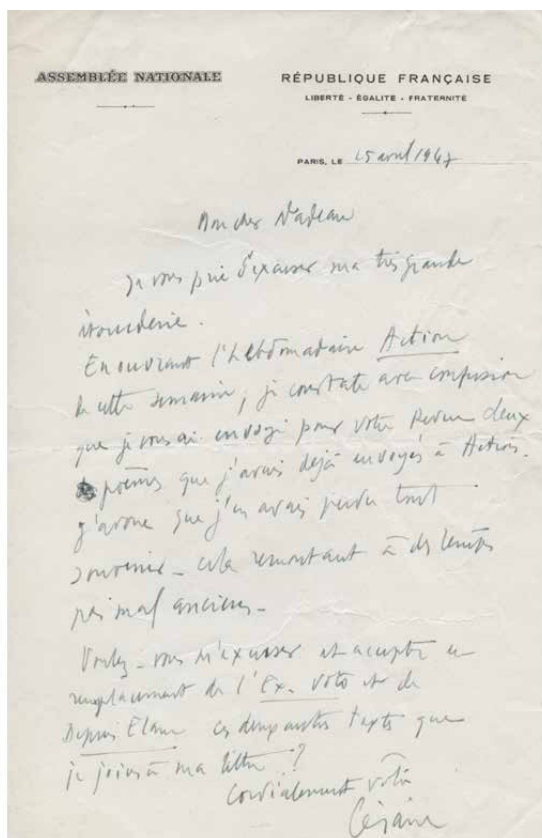 ASSEMBLÉE NATIONALE
RÉPUBLIQUE FRANÇAISE
LIBERTÉ - ÉGALITÉ - FRATERNITÉ
PARIS, LE 25 avril 1947
Mon cher Nadeau
Je vous prie d'excuser ma très grande
étourderie.
En ouvrant l'hebdomadaire Action
de cette semaine, je constate avec confusion
que je vous ai envoyé pour votre Revue deux
poèmes que j'avais déjà envoyés à Action.
J'avoue que j'en avais perdu tout
souvenir - cela remontant à des temps
pas mal anciens -
Voulez-vous m'excuser et accepter en
remplacement de l'Ex-voto et de
Depuis Elam ces deux autres textes que
je joins à ma lettre ?
Cordialement vôtre
Césaire